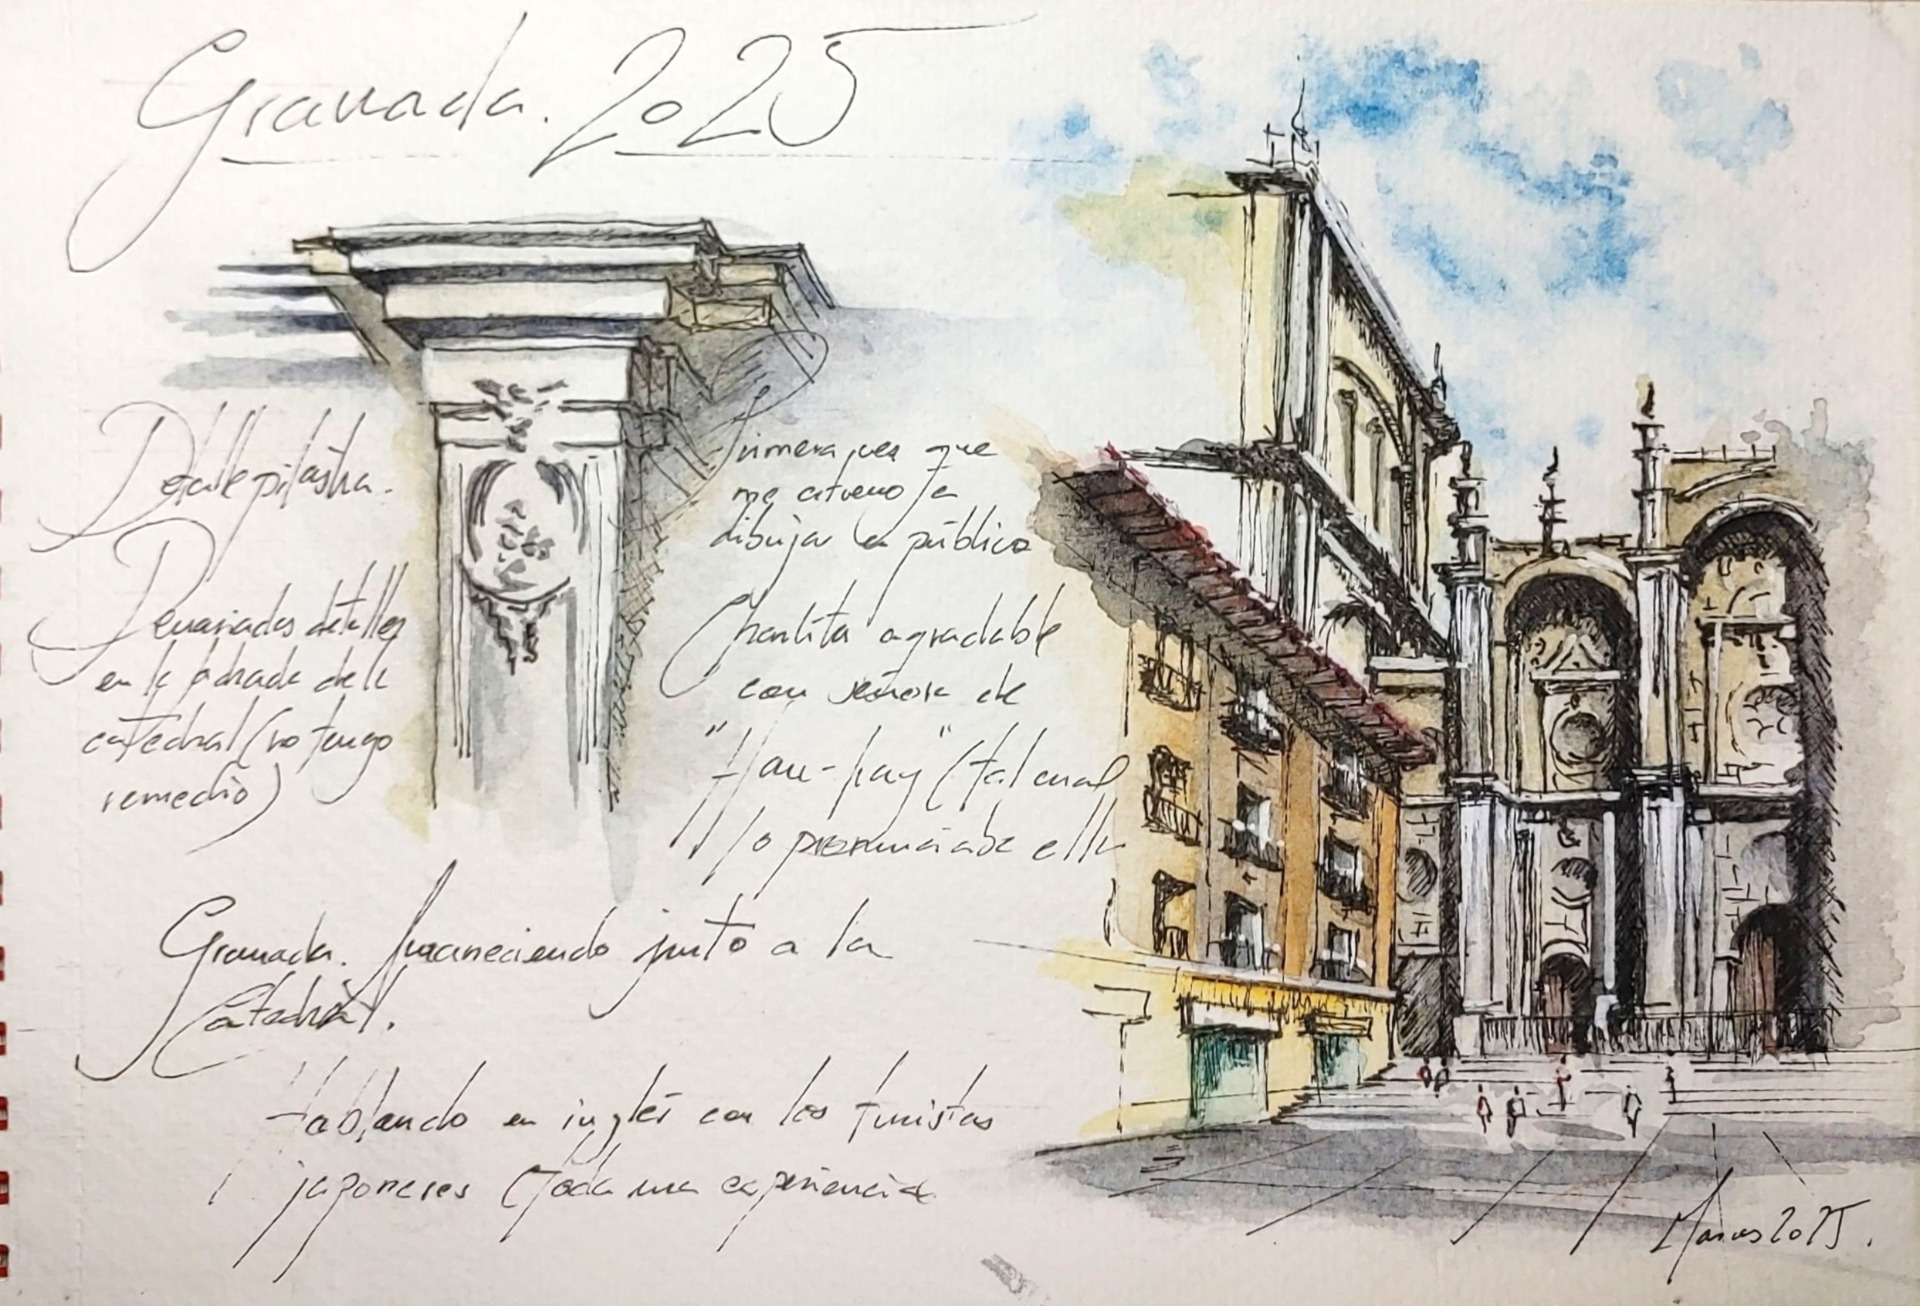 Granada. 2025
Detalle pilastra.
Demasiados detalles
en la fachada de la
catedral (no tengo
remedio)
Primera vez que
me atrevo a
dibujar en público
Charlita agradable
con señora de
"Hau-hay" (tal cual
lo pronunciaba ella
Granada. Amaneciendo junto a la
Catedral.
Hablando en inglés con los turistas
japoneses (Toda una experiencia
2025.